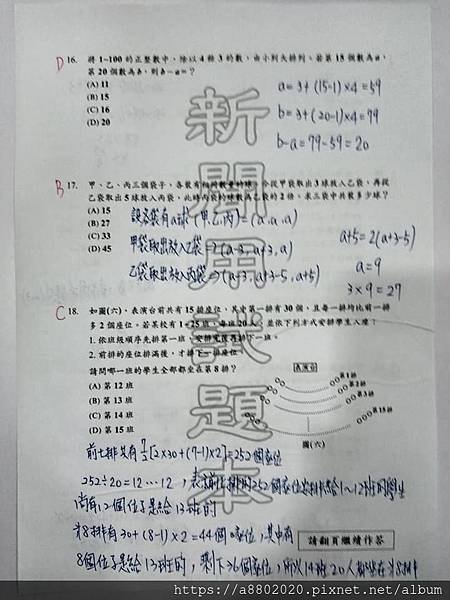 D 16. 將 1~100 的正整數中，除以 4 餘 3 的數，由小到大排列，若第 15 個數為 a，
第 20 個數為 b，則 b－a＝？
(A) 11
(B) 15
(C) 16
(D) 20
a = 3 + (15-1)×4 = 59
b = 3 + (20-1)×4 = 79
b-a = 79-59 = 20
B 17. 甲、乙、丙三個袋子，各裝有相同數量的球，今從甲袋取出 3 球放入乙袋，再從
乙袋取出 5 球放入丙袋，此時丙袋的球數為乙袋的 2 倍，求三袋中共幾多少球？
(A) 15
(B) 27
(C) 33
(D) 45
設各袋有a球 (甲,乙,丙)=(a,a,a)
甲袋取出放入乙袋⇒(a-3,a+3,a)
乙袋取出放入丙袋⇒(a-3,a+3-5,a+5)
a+5 = 2(a+3-5)
a = 9
3×9 = 27
C 18. 如圖(六)，表演台前共有 15 排座位，其中第一排有 30 個，且每一排均比前一排
多 2 個座位，若某校有 1~25 班，每班 20 人，並依下列方式安排學生入座：
1. 依班級順序先排第一班，安排完後再排下一班。
2. 前排的座位排滿後，才排下一排座位
請問哪一班的學生全部都坐在第 8 排？
(A) 第 12 班
(B) 第 13 班
(C) 第 14 班
(D) 第 15 班
表演台
第1排
第2排
第3排
第15排
圖(六)
前七排共有 7/2[2×30+(7-1)×2]=252個座位
252÷20=12…12，表前七排的252個座位安排給1~12班的學生
尚有12個位子是給13班的
第8排有30+(8-1)×2=44個座位，其中有
8個位子是給13班的，剩下36個座位，所以14班20人都坐在第8排
請翻頁繼續作答
新開用試題本
https://a8802020.pixnet.net/blog